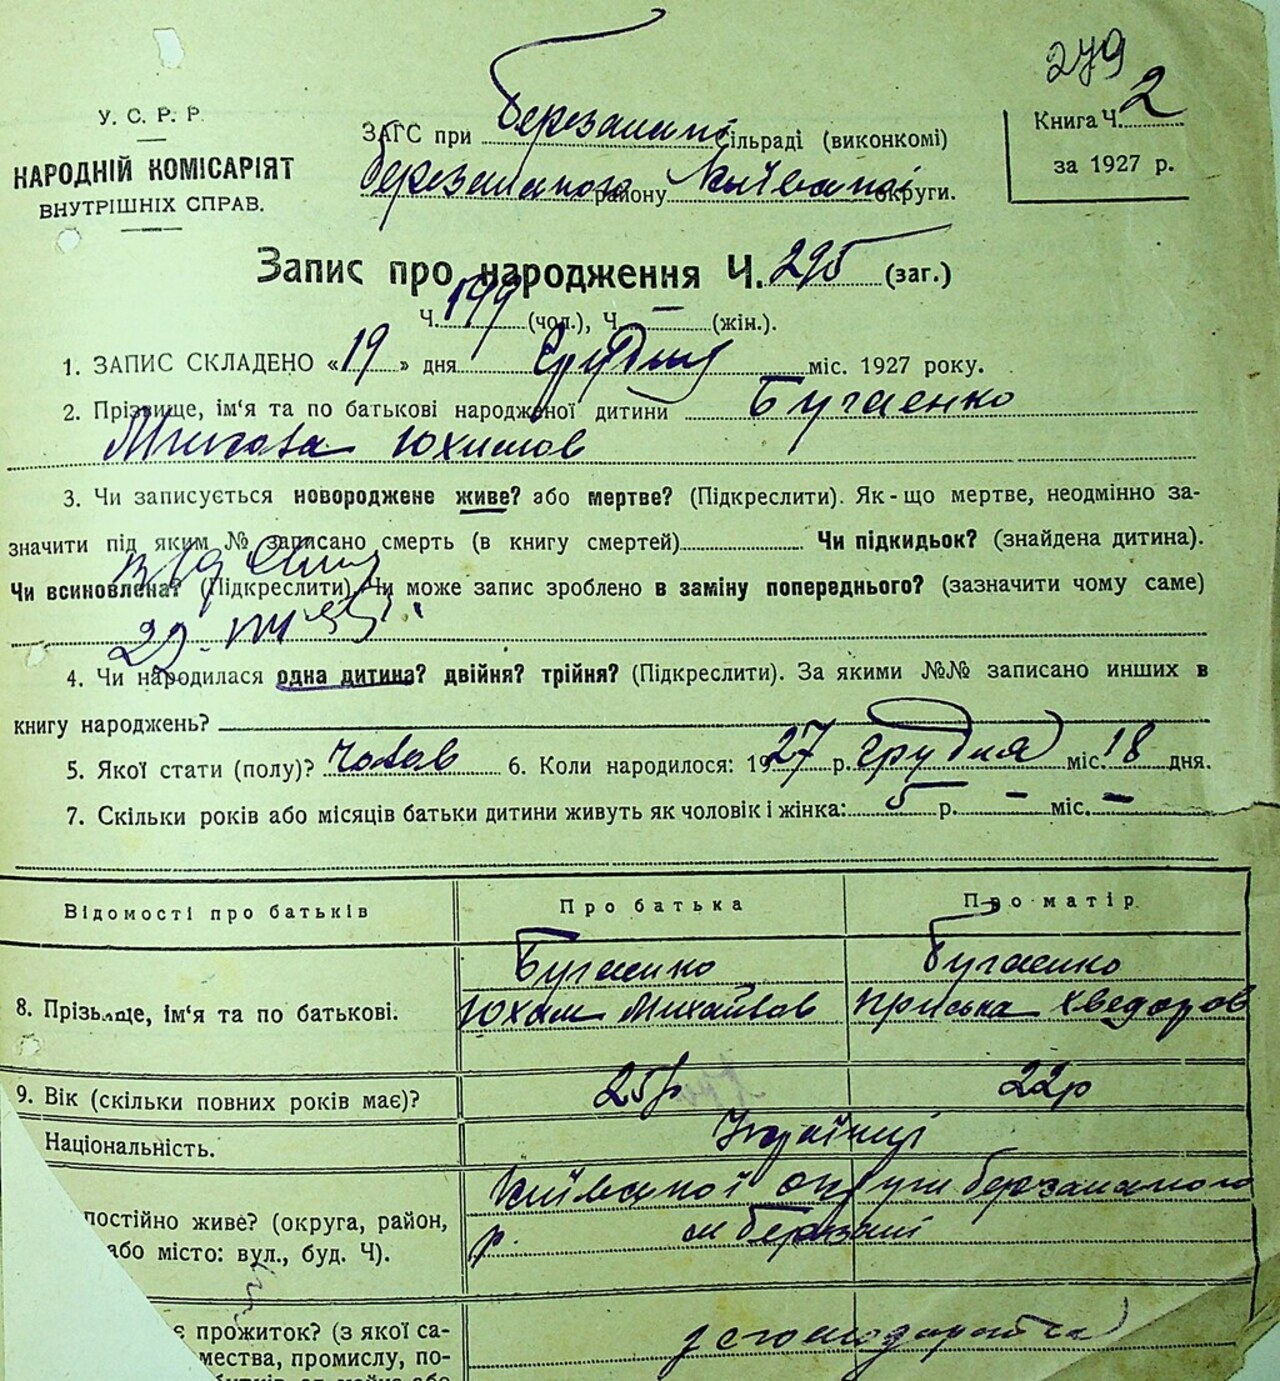 279
У. С. Р. Р.
НАРОДНІЙ КОМІСАРІЯТ
ВНУТРІШНІХ СПРАВ.
ЗАГС при Березанській сільраді (виконкомі)
Березанського району Київської округи.
Книга Ч. 2
за 1927 р.
Запис про народження Ч. 295 (заг.)
Ч. 149 (чол.), Ч. — (жін.).
1. ЗАПИС СКЛАДЕНО «19» дня Грудня міс. 1927 року.
2. Прізвище, ім'я та по батькові народженої дитини Бугаенко
Юхимов
3. Чи записується новороджене живе? або мертве? (Підкреслити). Як-що мертве, неодмінно за-
значити під яким № записано смерть (в книгу смертей) Чи підкидьок? (знайдена дитина).
Чи всиновлена? (Підкреслити) Чи може запис зроблено в заміну попереднього? (зазначити чому саме)
4. Чи народилася одна дитина? двійня? трійня? (Підкреслити). За якими №№ записано инших в
книгу народжень?
5. Якої стати (полу)? чолов 6. Коли народилося: 1927 р. грудня міс. 18 дня.
7. Скільки років або місяців батьки дитини живуть як чоловік і жінка: 5 р. — міс. —
Відомості про батьків Про батька Про матір
Бугаенко Бугаенко
8. Прізвище, ім'я та по батькові. Юхим Михайлов Приська Хведоров
9. Вік (скільки повних років має)? 25 р 22р
Національність. Українці
Київської округи Березанського
постійно живе? (округа, район, р. м Березані
або місто: вул., буд. Ч).
є прожиток? (з якої са- з господарства
мества, промислу, по-